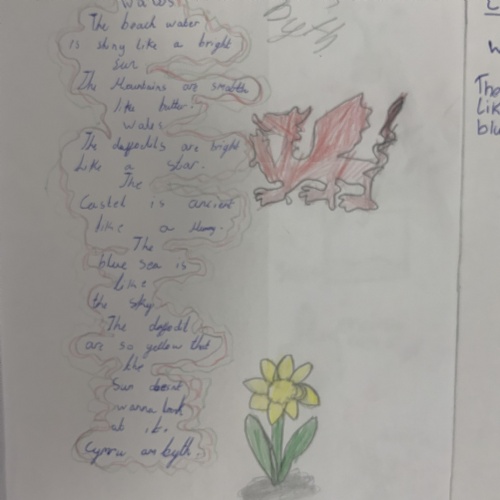 Wales
The beach water
is shiny like a bright
Sun
The Mountains are smooth
like butter!
Wales
The daffodils are bright
Like a star.
The
Castel is ancient
like a
The
blue sea is
like
the sky
The daffodil
are so yellow that
the
Sun doesnt
wanna look
at it.
Cymru am byth.
byth
L
W
Tha
Lik
blu